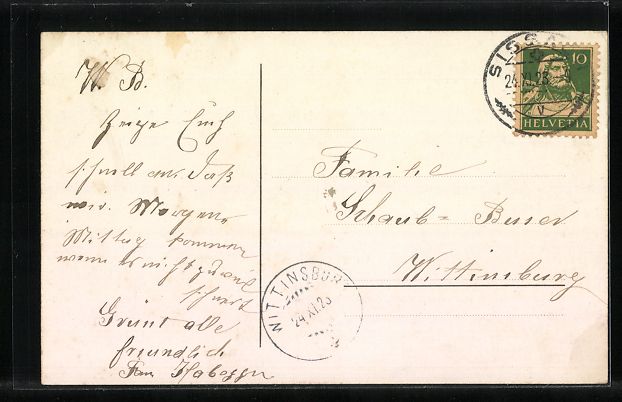 W. B.
Zeige Euch
schnell an, daß
wir Morgen
Mittag kommen
wenn es nicht zu arg
schneit
Grüsst alle
freundlich
Fam Habegger
SISSA
24.XI.23
V
10
HELVETIA
Familie
Schaub-Busser
Wittinsburg
WITTINSBUR
24.XI.23